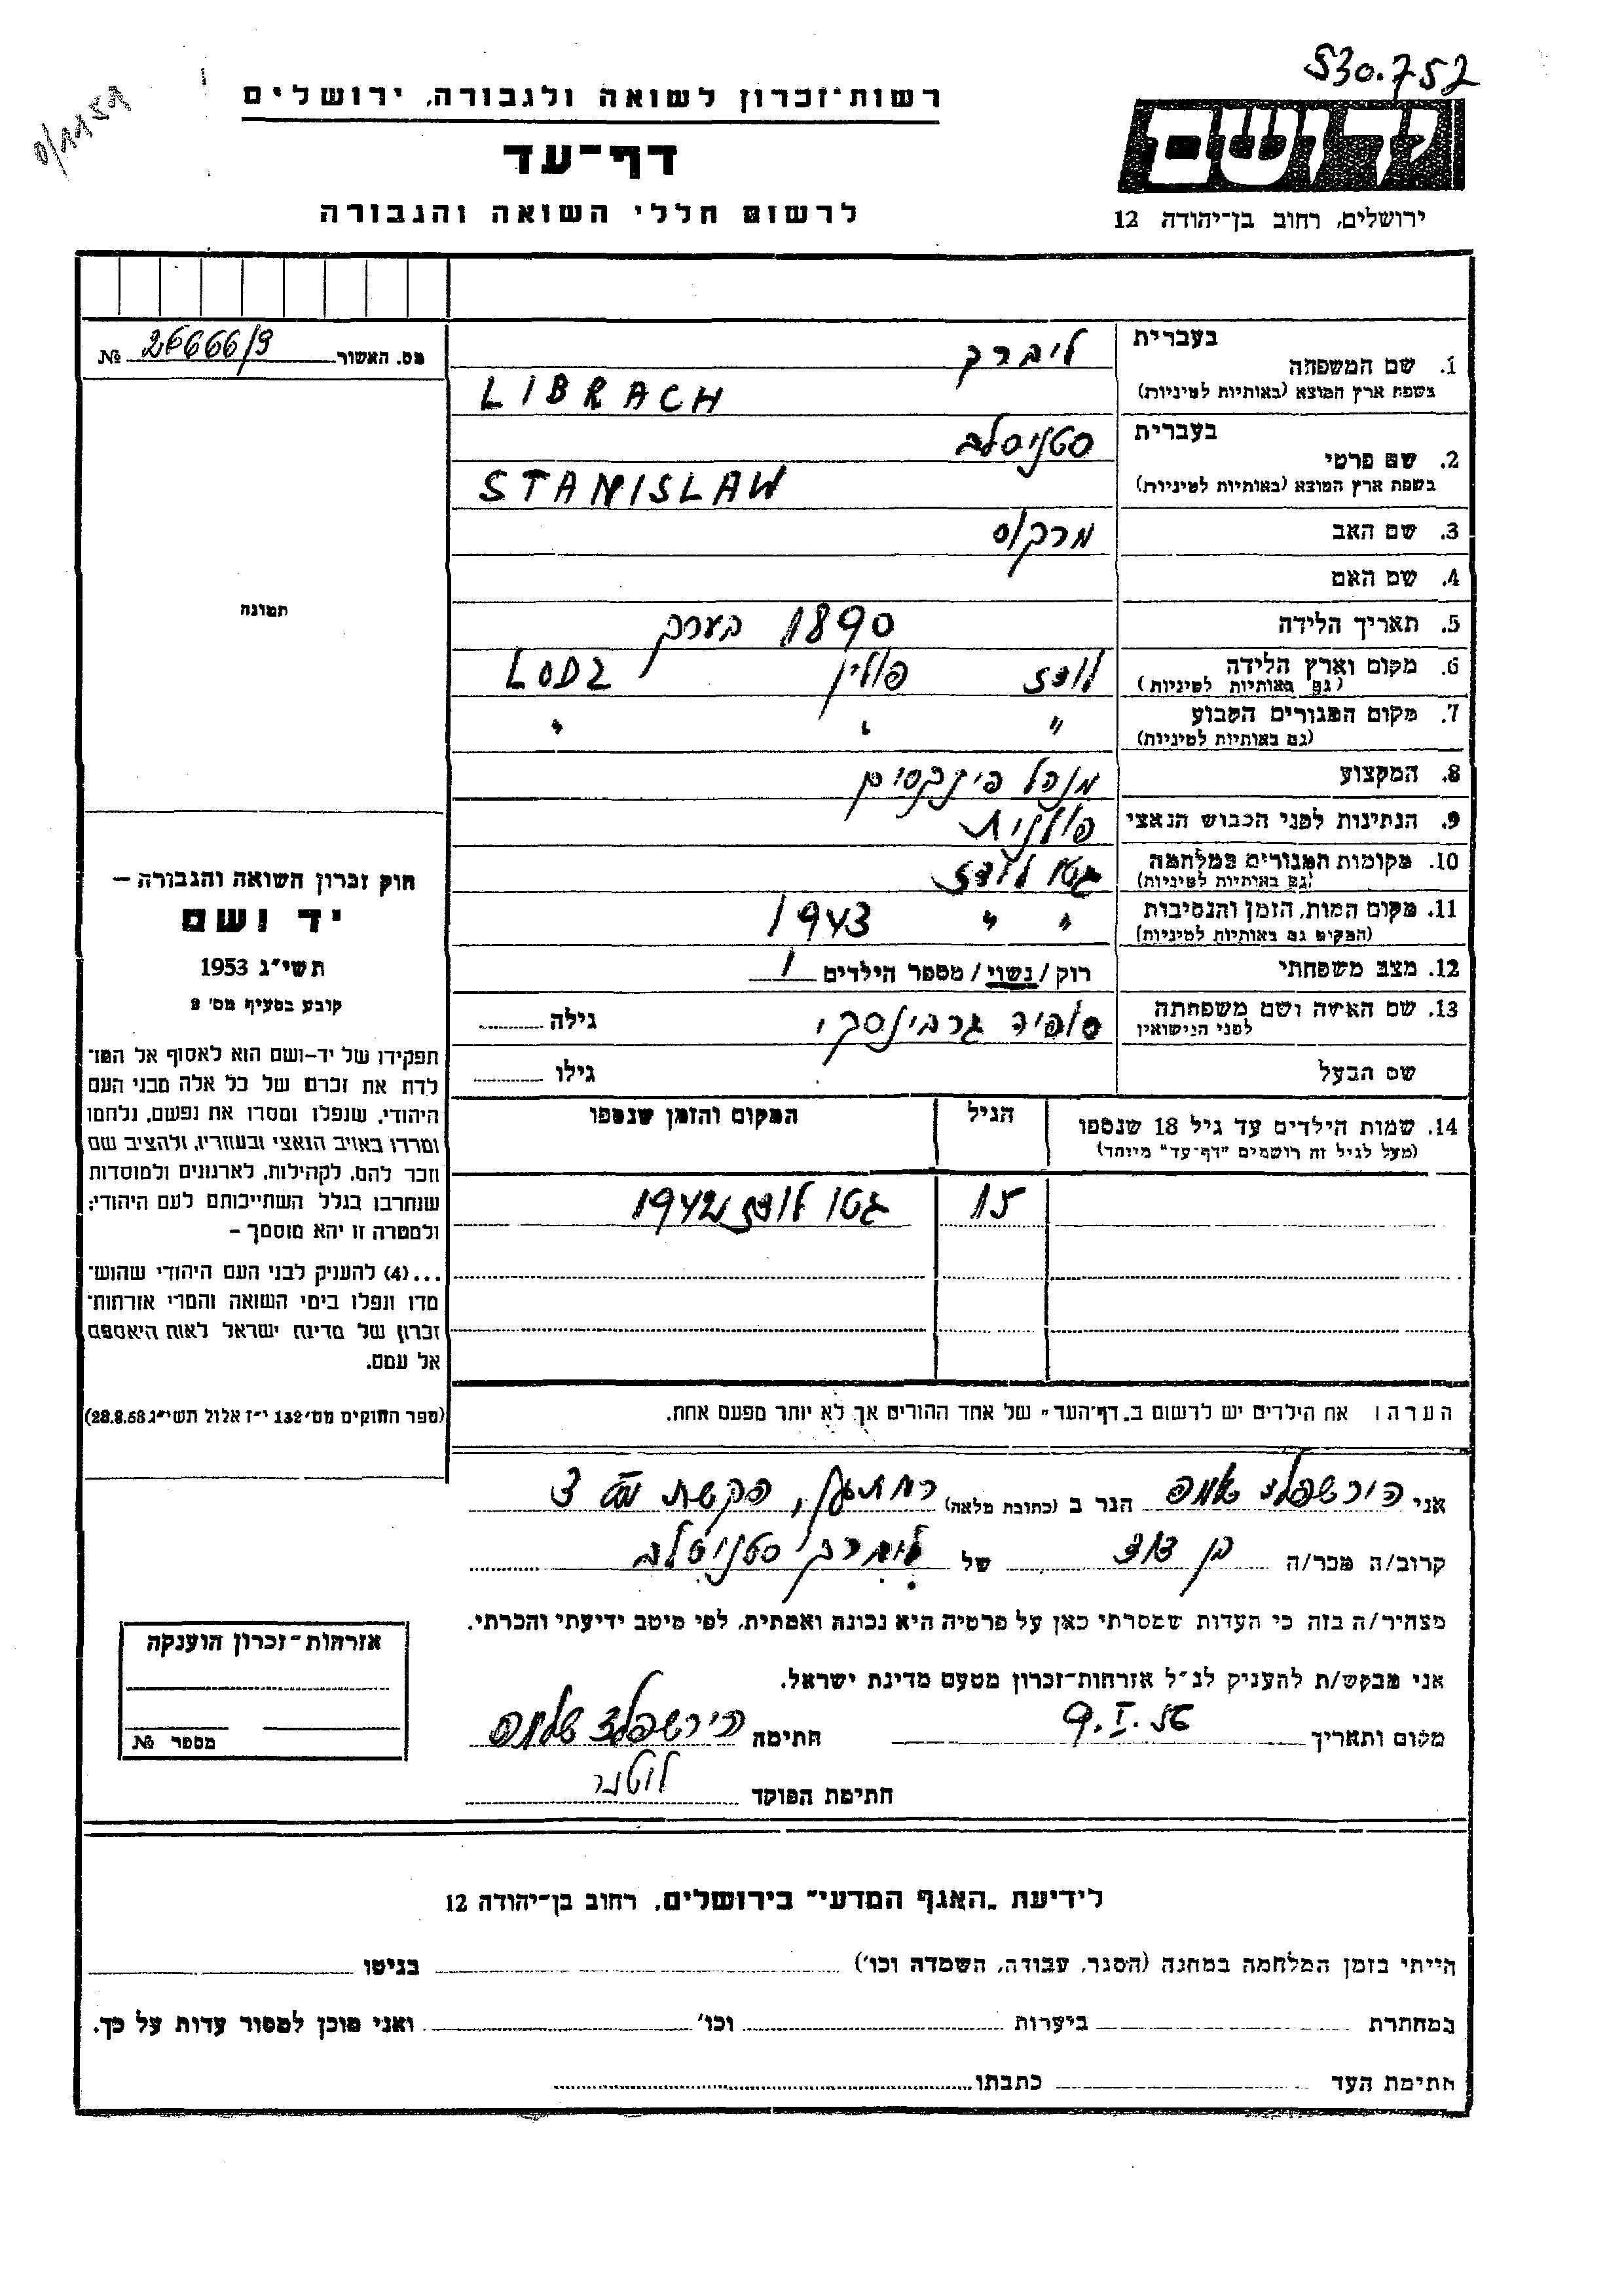 530.752
0/1159
רשות־זכרון לשואה ולגבורה, ירושלים
דף־עד
לרשום חללי השואה והגבורה
יד ושם
ירושלים, רחוב בן־יהודה 12
מס. האשור 26666/9 №
בעברית ליברך
1. שם המשפחה
בשפת ארץ המוצא (באותיות לטיניות) LIBRACH
בעברית סטניסלב
2. שם פרטי
בשפת ארץ המוצא (באותיות לטיניות) STANISLAW
3. שם האב מרקוס
4. שם האם
5. תאריך הלידה 1890 בערך
6. מקום וארץ הלידה לודז פולין LODZ
(גם באותיות לטיניות)
7. מקום המגורים הקבוע " " "
(גם באותיות לטיניות)
8. המקצוע מנהל פינקסים
9. הנתינות לפני הכבוש הנאצי פולנית
10. מקומות המגורים במלחמה גטו לודז
(גם באותיות לטיניות)
11. מקום המות, הזמן והנסיבות " " 1943
(המקום גם באותיות לטיניות)
12. מצב משפחתי רוק / נשוי / מספר הילדים 1
13. שם האישה ושם משפחתה סופיה גרבינסקי גילה
לפני הנישואין
שם הבעל גילו
14. שמות הילדים עד גיל 18 שנספו הגיל המקום והזמן שנספו
(מעל לגיל זה רושמים "דף־עד" מיוחד)
15 גטו לודז 1942
הערה: את הילדים יש לרשום ב„דף־העד" של אחד ההורים אך לא יותר מפעם אחת.
תמונה
חוק זכרון השואה והגבורה –
יד ושם
תשי"ג 1953
קובע בסעיף מס' 2
תפקידו של יד-ושם הוא לאסוף אל המו־
לדת את זכרם של כל אלה מבני העם
היהודי, שנפלו ומסרו את נפשם, נלחמו
ומרדו באויב הנאצי ובעוזריו, ולהציב שם
וזכר להם, לקהילות, לארגונים ולמוסדות
שנחרבו בגלל השתייכותם לעם היהודי;
ולמטרה זו יהא מוסמך –
...(4) להעניק לבני העם היהודי שהוש־
מדו ונפלו בימי השואה והמרי אזרחות־
זכרון של מדינת ישראל לאות היאספם
אל עמם.
(ספר החוקים מס' 132 י"ז אלול תשי"ג 28.8.53)
אני הירשפלד הגר ב (כתובת מלאה) הקשת 3
קרוב/ה מכר/ה בן דוד של ליברך סטניסלב
מצהיר/ה בזה כי העדות שמסרתי כאן על פרטיה היא נכונה ואמתית, לפי מיטב ידיעתי והכרתי.
אני מבקש/ת להעניק לנ"ל אזרחות־זכרון מטעם מדינת ישראל.
מקום ותאריך 9.I.56 חתימה הירשפלד שלמה
חתימת הפוקד
אזרחות־זכרון הוענקה
מספר №
לידיעת „האגף המדעי" בירושלים, רחוב בן־יהודה 12
הייתי בזמן המלחמה במחנה (הסגר, עבודה, השמדה וכו') בגיטו
במחתרת ביערות וכו' ואני מוכן למסור עדות על כך.
חתימת העד כתבתו